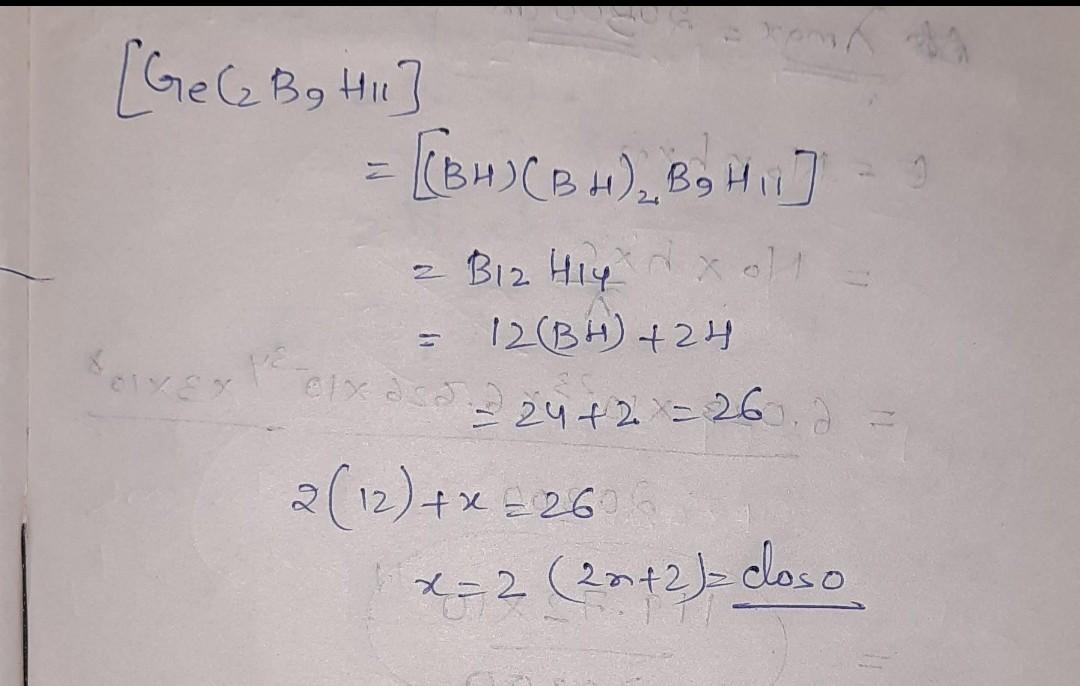 [GeC2B9H11]
= [(BH)(BH)2 B9H11]
= B12 H14
= 12(BH) + 2H
= 24 + 2 = 26
2(12) + x = 26
x = 2 (2n+2) = closo